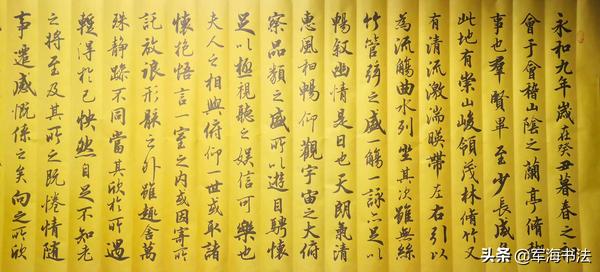 永和九年歲在癸丑暮春之
會于會稽山陰之蘭亭脩
事也羣賢畢至少長咸
此地有崇山峻領茂林脩竹又
有清流激湍暎帶左右引以
為流觴曲水列坐其次雖無絲
竹管弦之盛一觴一詠亦足以
暢叙幽情是日也天朗氣清
惠風和暢仰觀宇宙之大俯
察品類之盛所以遊目騁懷
足以極視聽之娛信可樂也
夫人之相與俯仰一世或取諸
懷抱悟言一室之內或因寄所
託放浪形骸之外雖趣舍萬
殊静躁不同當其欣於所遇
蹔得於己快然自足不知老
之將至及其所之既惓情隨
事遷感慨係之矣向之所欣
头条 @军海书法